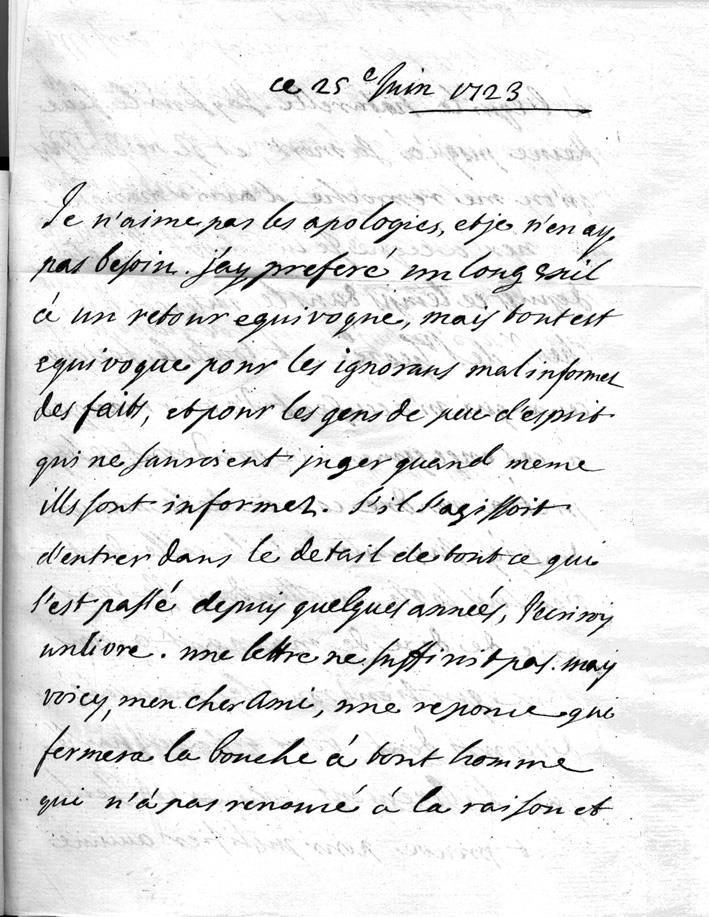 ce 25e Juin 1723
Je n'aime pas les apologies, et je n'en ay
pas besoin. J'ay preferé un long exil
á un retour equivoque, mais tout est
equivoque pour les ignorans mal informez
des faits, et pour les gens de peu d'esprit
qui ne sauroient juger quand meme
ils sont informez. s'il s'agissoit
d'entrer dans le detail de tout ce qui
s'est passé depuis quelques années, j'ecrirois
un livre. une lettre ne suffiroit pas. mais
voicy, mon cher Ami, une reponce qui
fermera la bouche á tout homme
qui n'á pas renoncé á la raison et